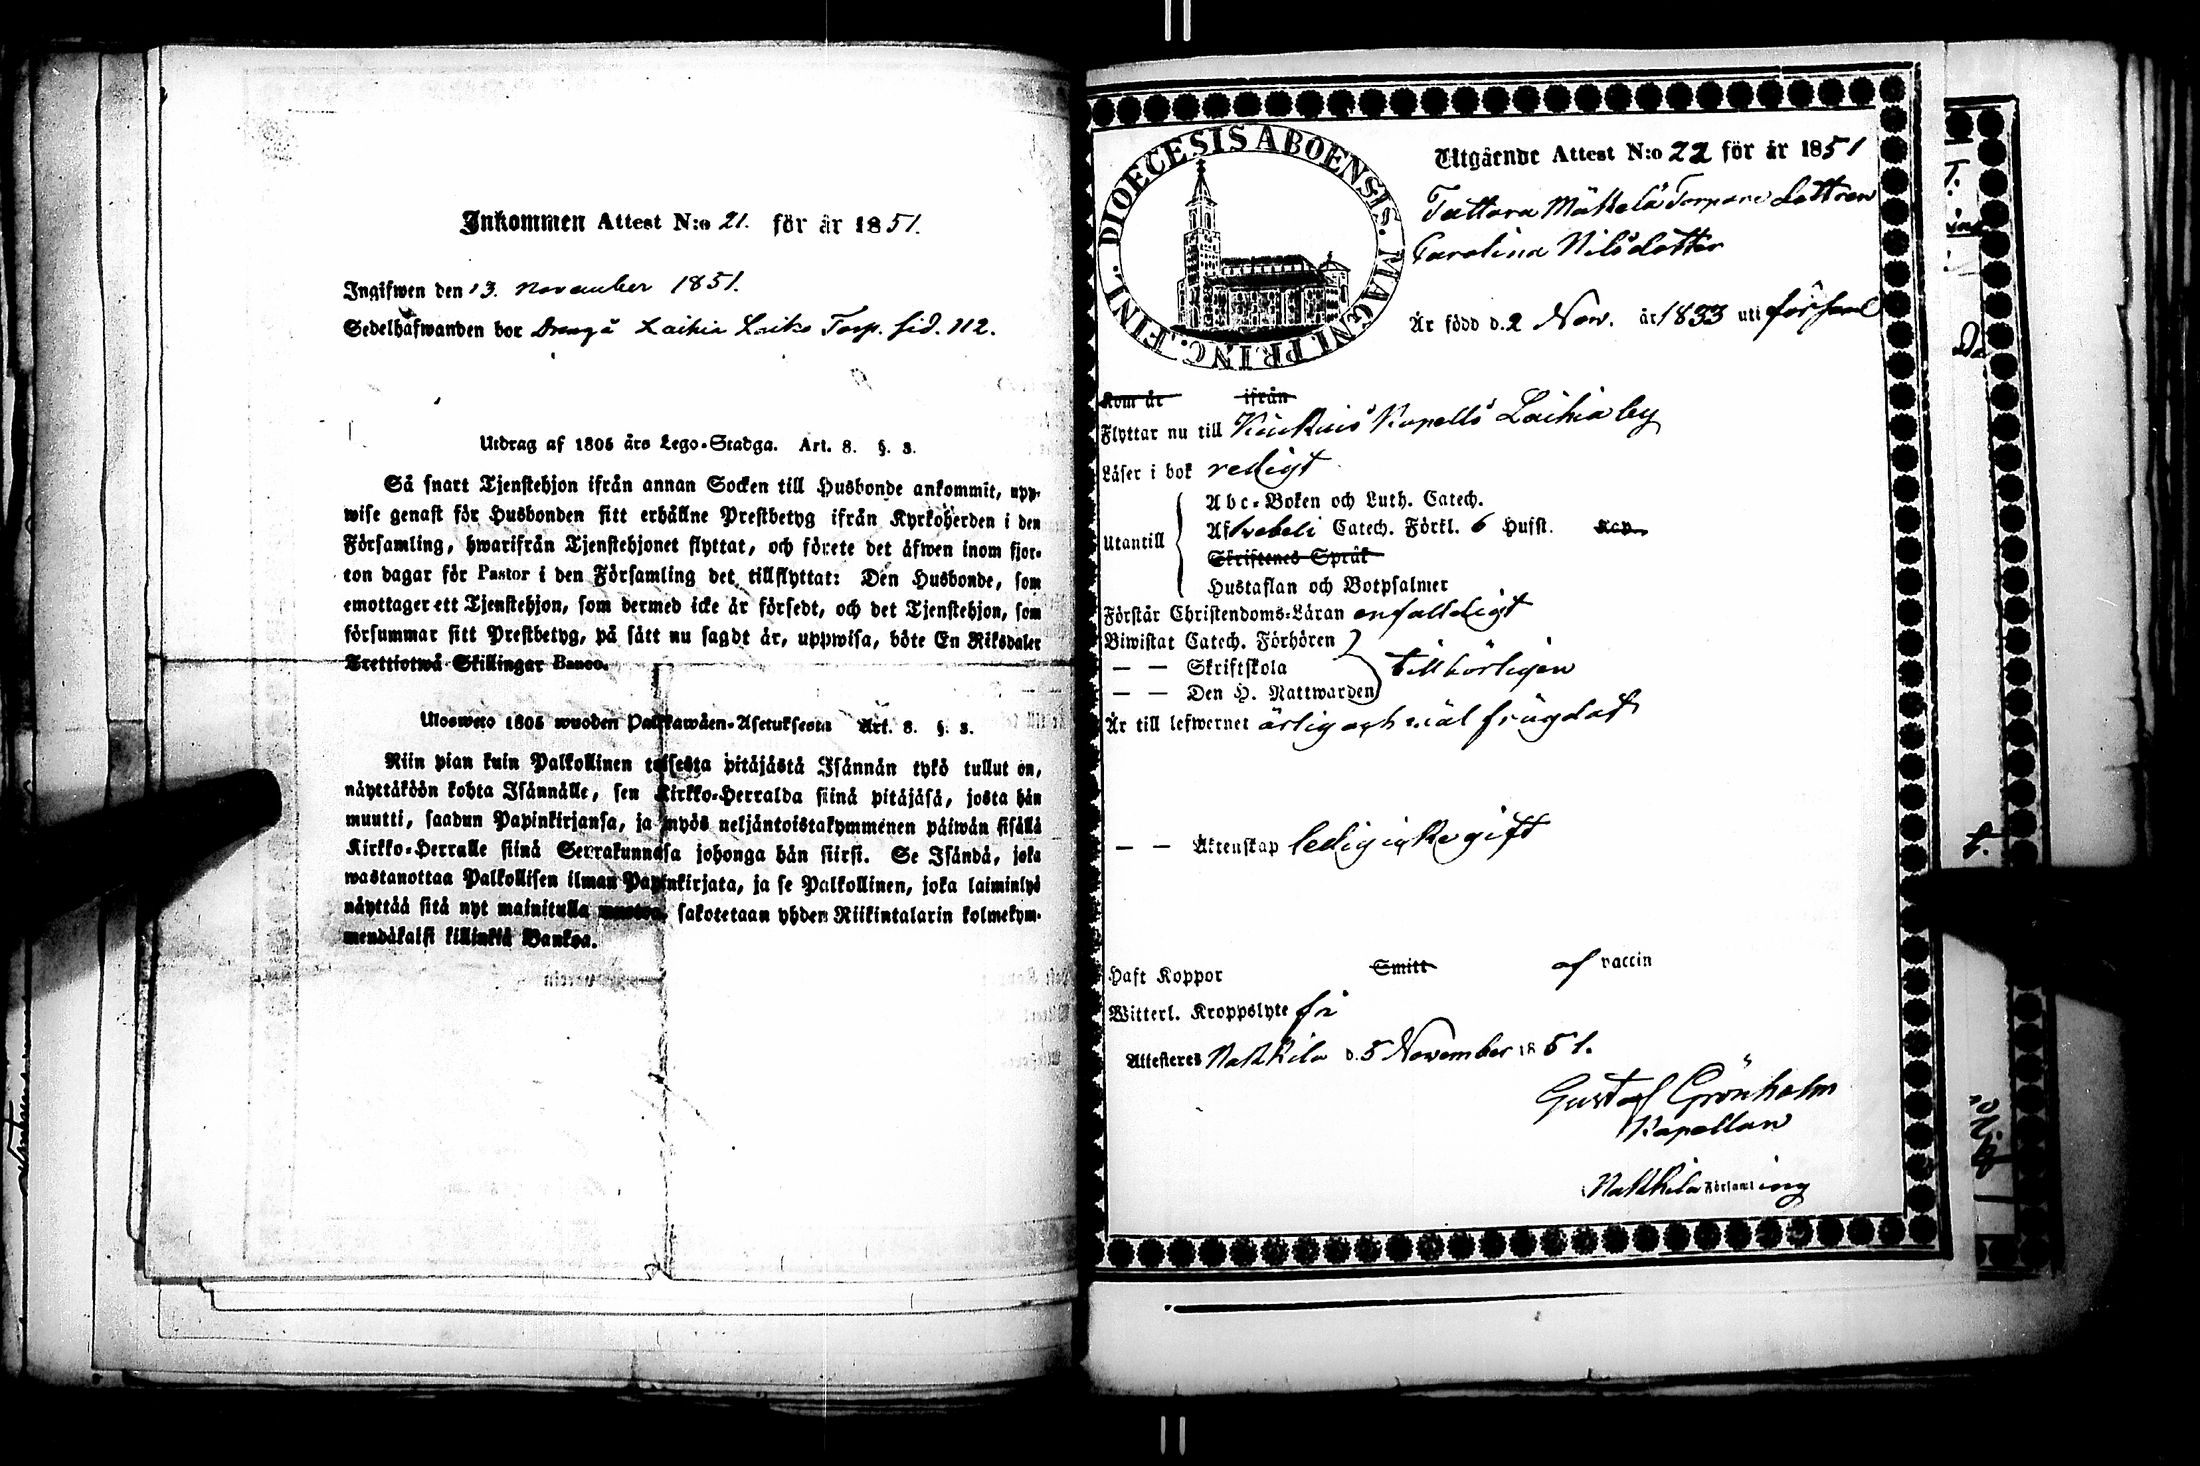 Inkommen Attest N:o 21. för år 1851.
Ingifwen den 13. november 1851.
Sedelhafwanden bor Laihia Torp. sid. 112.
Utdrag af 1805 års Lego-Stadga. Art. 8. §. 3.
Så snart Tjenstehjon ifrån annan Socken till Husbonde ankommit, upp-
wise genast för Husbonden sitt erhållne Prestbetyg ifrån Kyrkoherden i den
Församling, hwarifrån Tjenstehjonet flyttat, och förete det äfwen inom fjor-
ton dagar för Pastor i den Församling det tillflyttat: Den Husbonde, som
emottager ett Tjenstehjon, som dermed icke är försedt, och det Tjenstehjon, som
försummar sitt Prestbetyg, på sätt nu sagdt är, uppwisa, böte En Riksdaler
Trettiotwå Skillingar Banco.
Ulosweto 1805 wuoden Palkkawäen-Asetuksesta Art. 8. §. 3.
Niin pian kuin Palkollinen toisesta pitäjästä Isännän tykö tullut on,
näyttäköön kohta Isännälle, sen Kirkko-Herralda siinä pitäjäsä, josta hän
muutti, saadun Papinkirjansa, ja myös neljäntoistakymmenen päiwän sisällä
Kirkko-Herralle siinä Seurakunnasa johonga hän siirsi. Se Isändä, joka
wastanottaa Palkollisen ilman Papinkirjata, ja se Palkollinen, joka laiminlyö
näyttää sitä nyt mainitulla sakotetaan yhden Riikintalarin kolmekym-
mendäkaksi killinkiä Bankoa.
DIOECESIS ABOENSIS. MAGNI PRINC. FINL.
Utgående Attest N:o 22 för år 1851
Tattara Mäkelä Torpare Dottren
Carolina Nilsdotter
Är född d. 2 Nov. år 1833 uti förs
Kom år ifrån
Flyttar nu till Kapells Laihia by
Läser i bok redigt
Utantill
Abc-Boken och Luth. Catech.
Af Catech. Förkl. 6 Hufst. Kap.
Skriftenes Språk
Hustaflan och Botpsalmer
Förstår Christendoms-Läran enfalldigt
Biwistat Catech. Förhören
— — Skriftskola tillbörligen
— — Den H. Nattwarden
Är till lefwernet ärlig och wäl frägdat
— — Äktenskap ledig icke gift
Haft Koppor Smitt af vaccin
Witterl. Kroppslyte fri
Attesteres Nakkila d. 5 November 1851.
Gustaf Grönholm
Kapellan
i Nakkila Församling